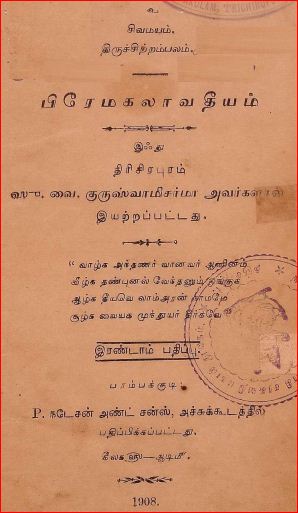 உ
சிவமயம்.
திருச்சிற்றம்பலம்.
பிரேமகலாவதீயம்
இஃது
திரிசிரபுரம்
வை. குருஸ்வாமிசர்மா அவர்களால்
இயற்றப்பட்டது.
“ வாழ்க அந்தணர் வானவர் ஆனினம்
வீழ்க தண்புனல் வேந்தனும் ஓங்குக
ஆழ்க தீயவெ லாம்அரன் நாமமே
சூழ்க வையக முந்துயர் தீர்கவே ”
இரண்டாம் பதிப்பு.
பாம்பக்குடி
P. நடேசன் அண்ட் சன்ஸ், அச்சுக்கூடத்தில்
பதிப்பிக்கப்பட்டது.
கீலக ௵—ஆடி௴
1908.